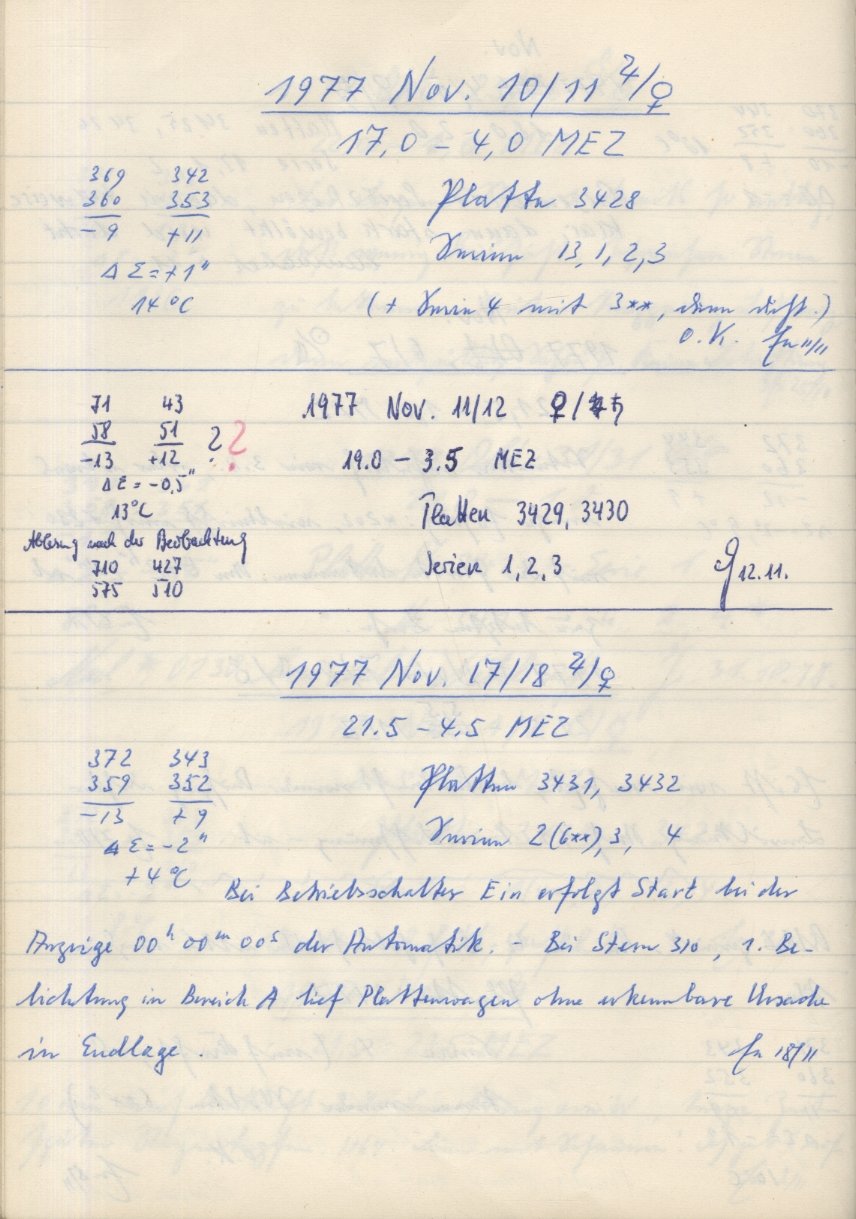 1977 Nov. 10/11 ♃/♀
17,0 – 4,0 MEZ
369 342
360 353
-9 +11
Δ Σ = +1"
14 °C
Platte 3428
Serien 13, 1, 2, 3
(+ Serie 4 mit 3**, dann dicht.)
O.K. 11/11
71 43
58 51 ? ?
-13 +12
Δ Σ = -0,5"
13°C
Ablesung nach der Beobachtung
710 427
575 510
1977 Nov. 11/12 ♀/♄
19.0 – 3.5 MEZ
Platten 3429, 3430
Serien 1, 2, 3
12.11.
1977 Nov. 17/18 ♃/♀
21.5 – 4.5 MEZ
372 343
359 352
-13 +9
Δ Σ = -2"
+4 °C
Platten 3431, 3432
Serien 2(6**), 3, 4
Bei Betriebsschalter Ein erfolgt Start bei der
Anzeige 00h 00m 00s der Automatik. – Bei Stern 310, 1. Be-
lichtung in Bereich A lief Plattenwagen ohne erkennbare Ursache
in Endlage.
18/11